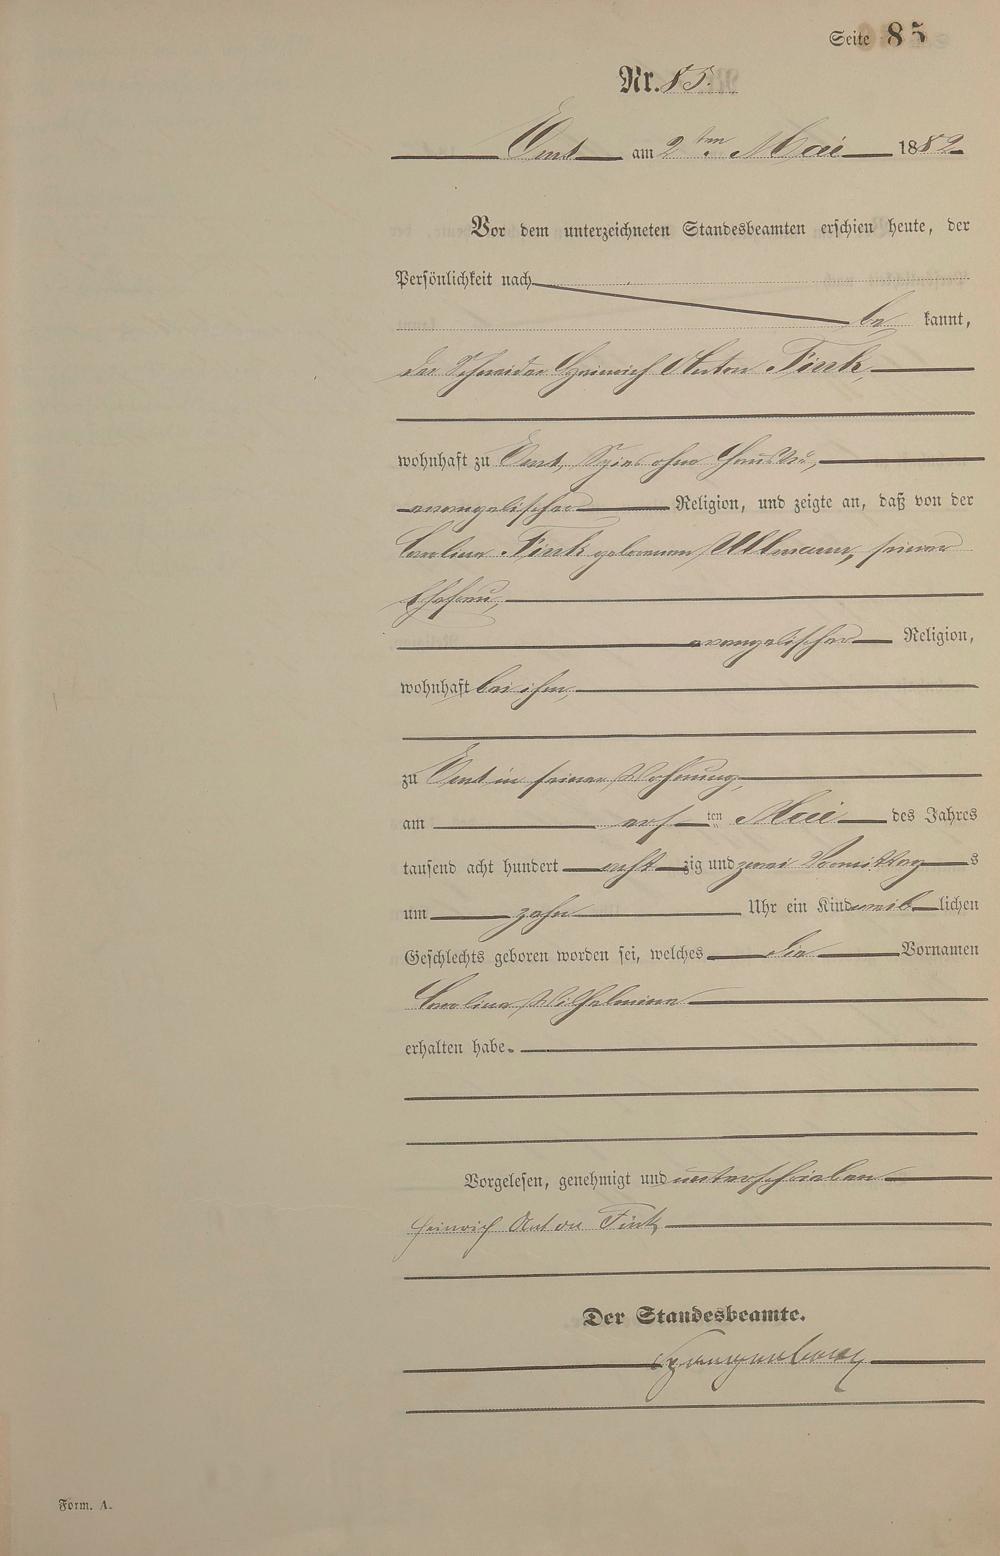 Seite 85
Nr. 85.
am 2ten Mai 1882
Vor dem unterzeichneten Standesbeamten erschien heute, der
Persönlichkeit nach
be kannt,
der Schneider Heinrich Anton Fink,
wohnhaft zu ohne
evangelischer Religion, und zeigte an, daß von der
Caroline Fink geborenen Ullmann, seiner
Ehefrau,
evangelischer Religion,
wohnhaft bei ihm,
zu in seiner Wohnung
am ersten Mai des Jahres
tausend acht hundert acht zig und zwei Vormittags
um zehn Uhr ein Kind weiblichen
Geschlechts geboren worden sei, welches die Vornamen
Caroline Wilhelmine
erhalten habe.
Vorgelesen, genehmigt und unterschrieben
Heinrich Anton Fink
Der Standesbeamte.
Form. A.